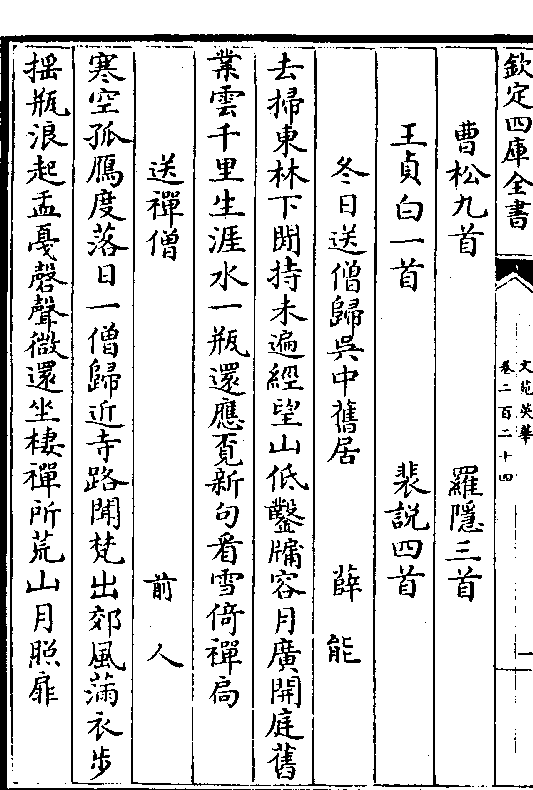 欽定四庫全書
文苑英華
卷二百二十四
一
曹松九首 羅隱三首
王貞白一首 裴說四首
冬日送僧歸吳中舊居 薛能
去掃東林下閒持未遍經望山低鑿牖容月廣開庭舊
業雲千里生涯水一瓶還應覓新句看雪倚禪扃
送禪僧 前人
寒空孤鴈度落日一僧歸近寺路聞梵出郊風滿衣步
揺瓶浪起盂戞磬聲微還坐棲禪所荒山月照扉